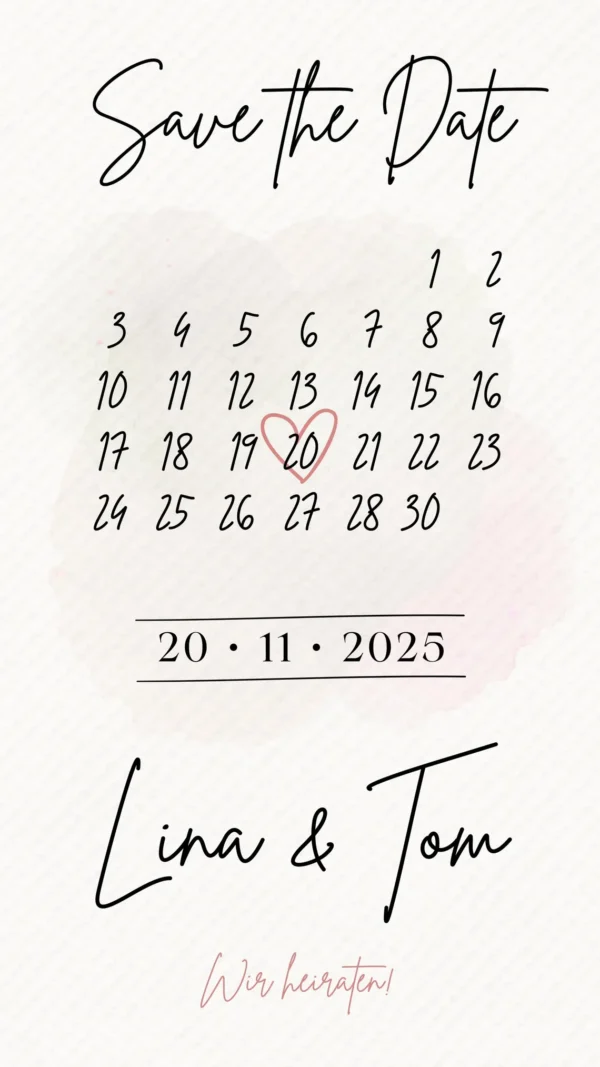 Save the Date
1 2
3 4 5 6 7 8 9
10 11 12 13 14 15 16
17 18 19 20 21 22 23
24 25 26 27 28 30
20 • 11 • 2025
Lina & Tom
Wir heiraten!